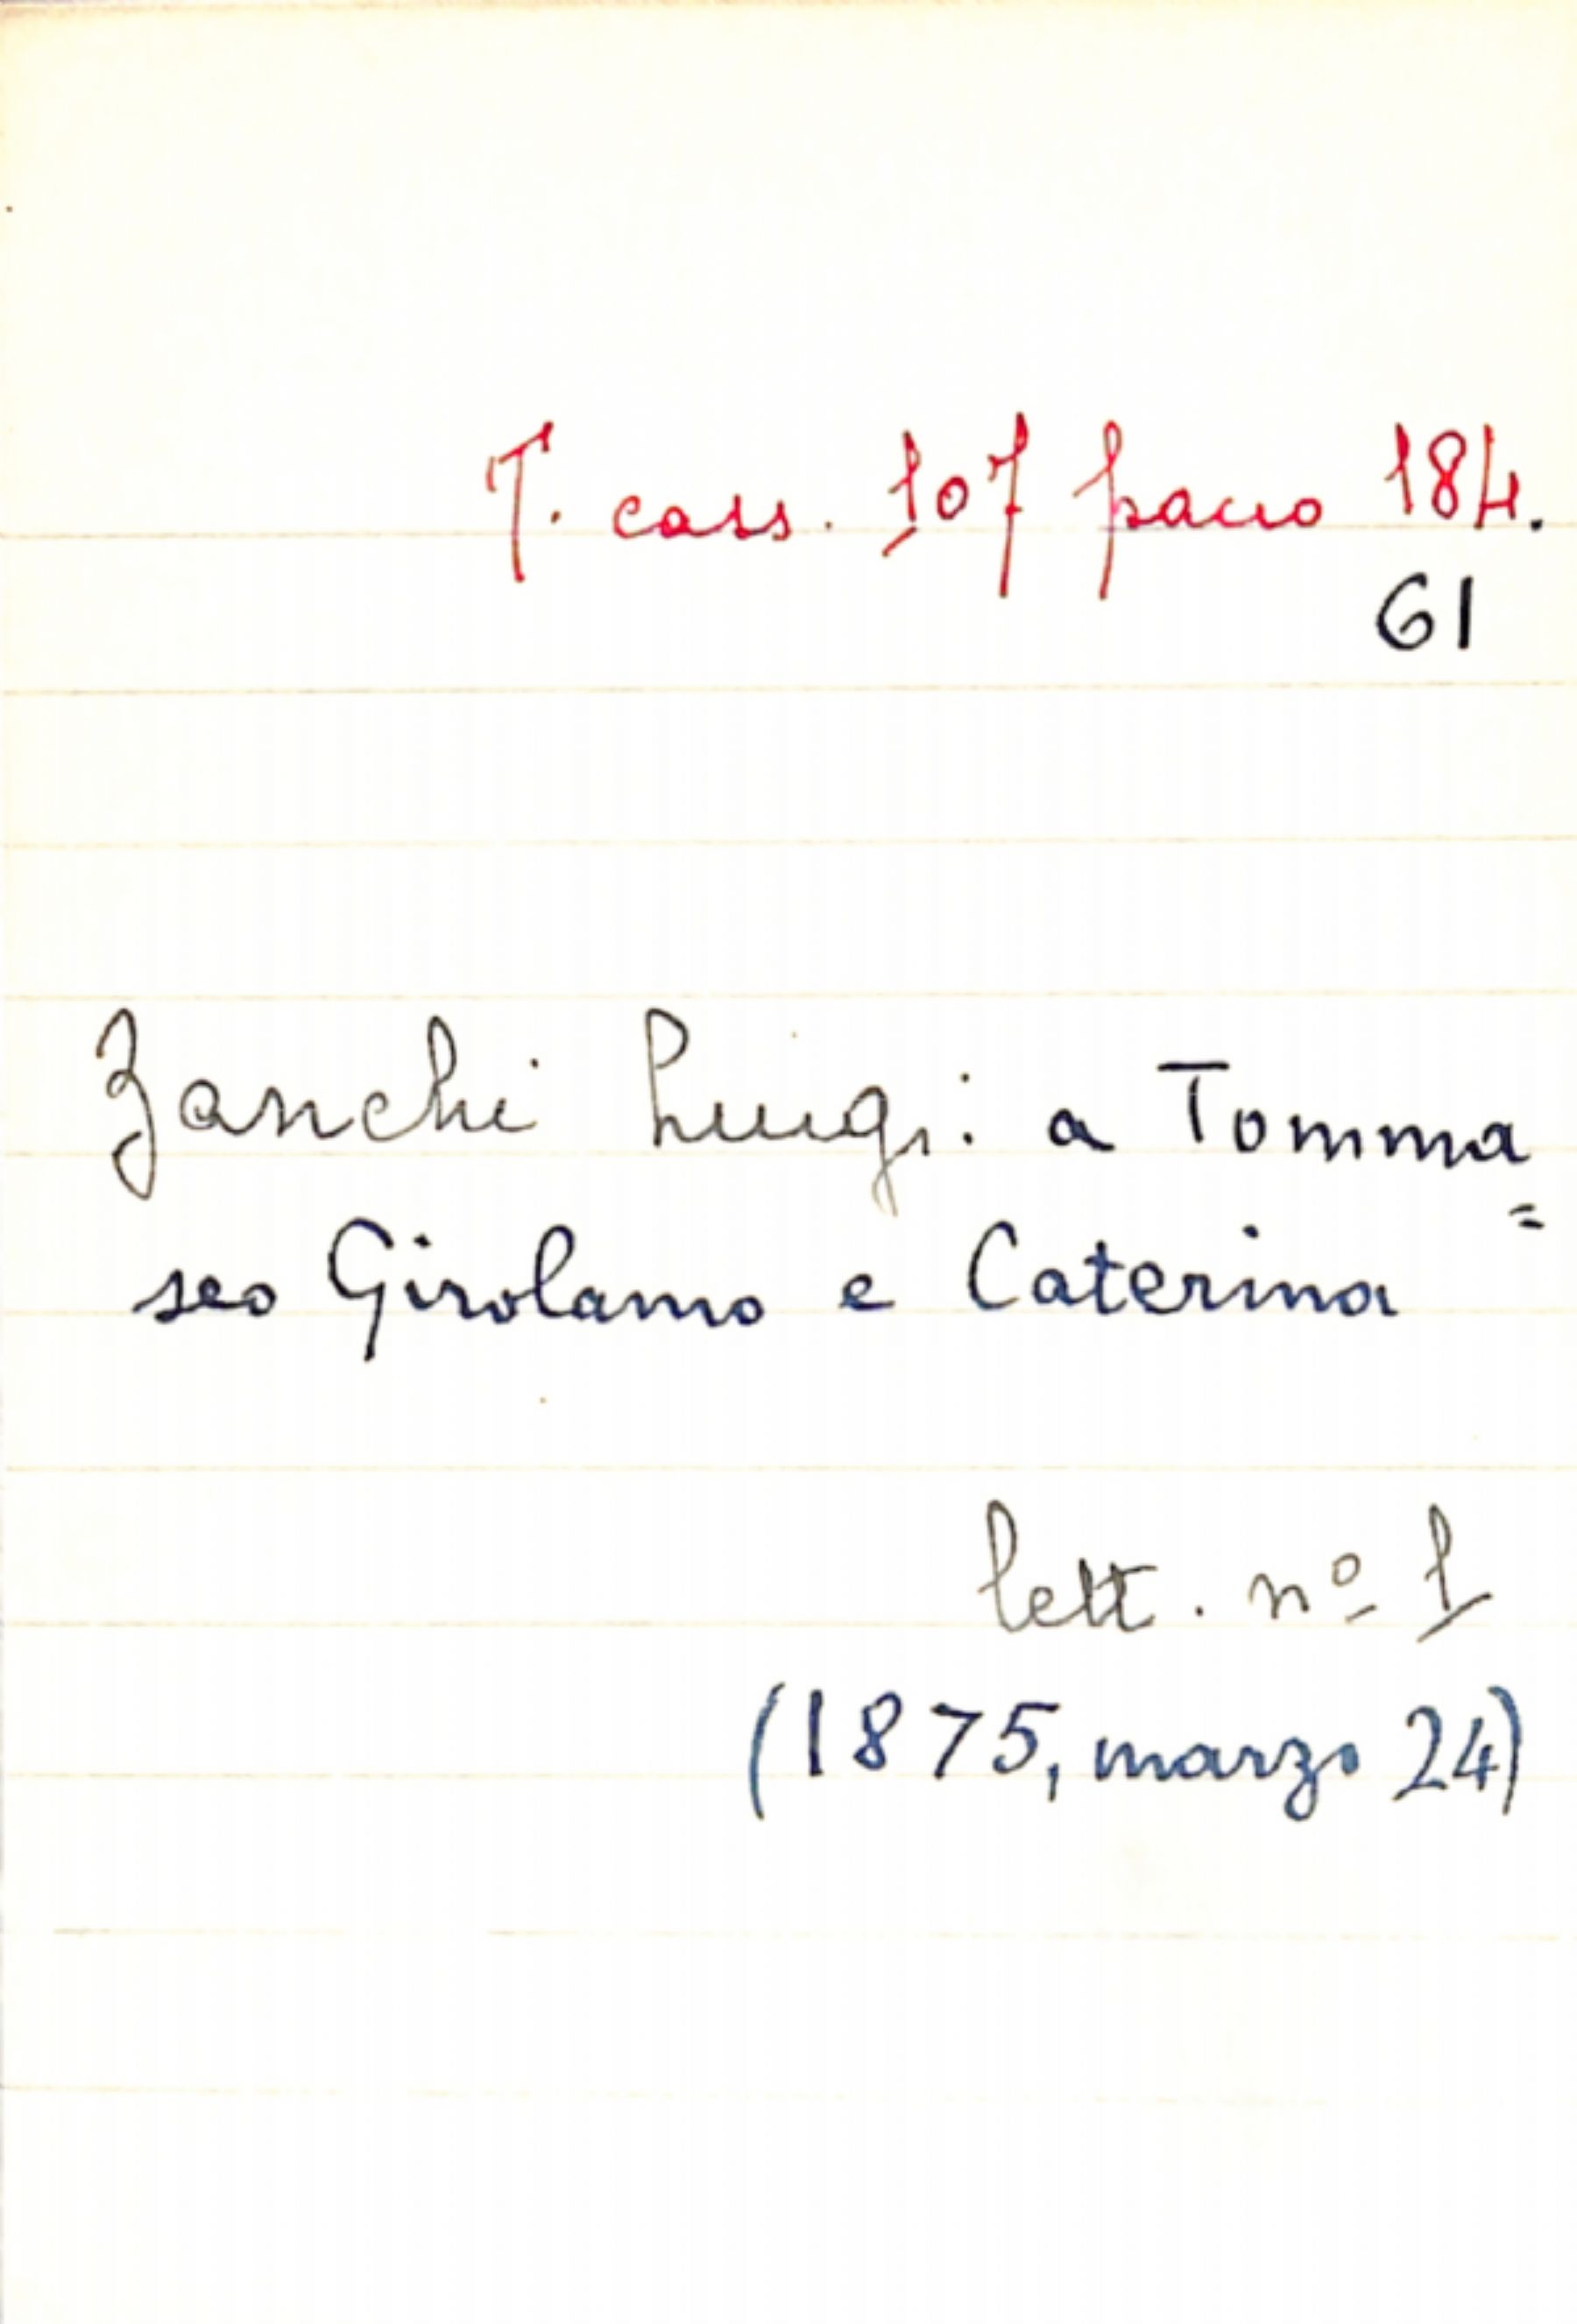 T. cass. 107 pacco 184.
61
Zanchi Luigi: a Tomma
=
seo Girolamo e Caterina
lett. nº 1
(1875, marzo 24)